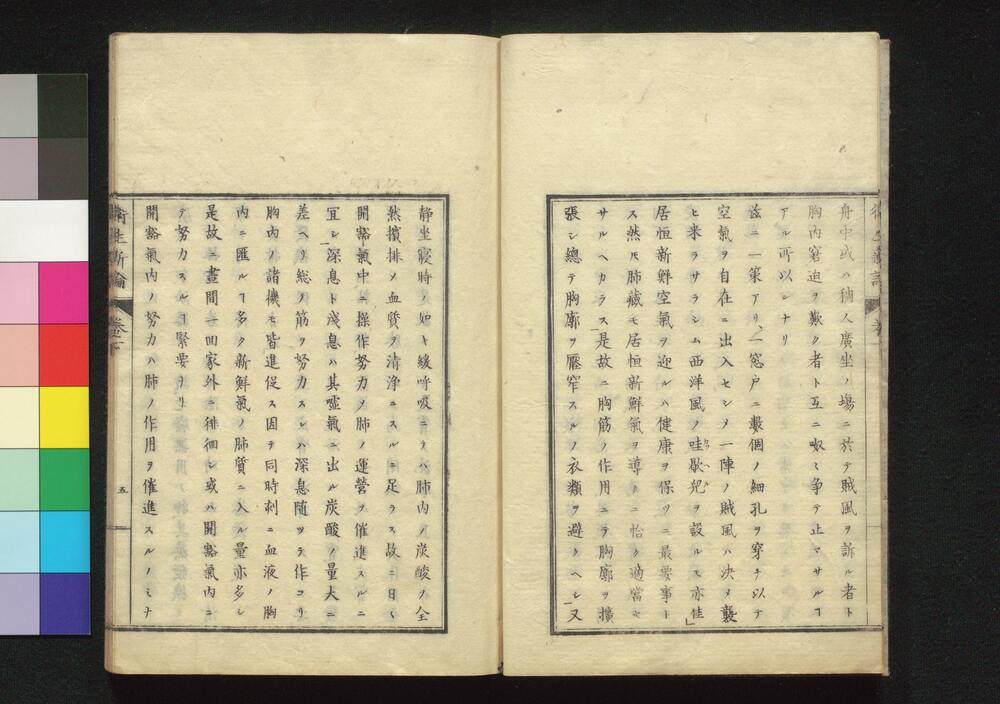 舟中或ハ稠人廣坐ノ場ニ於テ賊風ヲ訴ル者ト
胸内窘迫ヲ歎ク者ト互ニ呶〻争テ止マサルヿ
アル所以シナリ
茲ニ一策アリ、一窓戸ニ數個ノ細孔ヲ穿チ以テ
空氣ヲ自在ニ出入セシメ一陣ノ賊風ハ决メ襲
ヒ来ラサラシム西洋風ノ哇歇兒ヲ設ルモ亦佳」
居恒新鮮空氣ヲ迎ルハ健康ヲ保ツニ最要事ト
ス然𪜈肺藏モ居恒新鮮氣ヲ導クニ恰ク適當セ
サルヘカラス是故ニ胸筋ノ作用ニヨリ胸廓ヲ擴
張シ總テ胸廓ヲ壓窄スルノ衣類ヲ避クヘシ」又
静坐寝時ノ如キ緩呼吸ニテハ肺内ノ炭酸ヲ全
然擯排メ血質ヲ清浄ニスルニ足ラス故ニ日〻
開豁氣中ニ操作努力メ肺ノ運營ヲ催進スルニ
冝シ深息ト淺息ハ其噓氣ニ出ル炭酸ノ量大ニ
差ヘリ総ノ筋ヲ努力スレハ深息随ツテ作コリ
胸内ノ諸機モ皆進促ス因テ同時刻ニ血液ノ胸
内ニ匯ルヿ多ク新鮮氣ノ肺質ニ入ル量亦多シ
是故ニ晝間一回家外ニ徘徊シ或ハ開豁氣内ニ
テ努力スルヿ緊要ナリ
開豁氣内ノ努力ハ肺ノ作用ヲ催進スルノミナ
衛生新論 卷之下
五